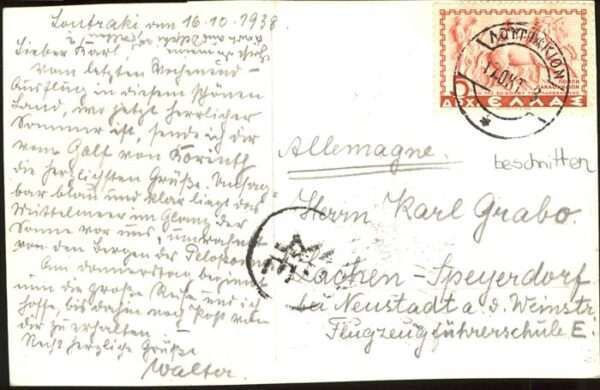 Loutraki am 16.10.1938
Lieber Karl!
Vom letzten Wochenend-
Ausflug in diesem schönen
Land, wo jetzt herrlicher
Sommer ist, sende ich dir
vom Golf von Korinth
die herzlichsten Grüße. Unsag-
bar blau und klar liegt das
Mittelmeer im Glanz der
Sonne vor uns, umrahmt
von den Bergen des Pelopon
Am Donnerstag beginnt
nun die große Reise und ich
hoffe, bis dahin noch Post von
dir zu erhalten.
Recht herzliche Grüße
Walter.
ΛΟΥΤΡΑΚΙΟΝ
17 ΟΚΤ
ΔΡΧ ΕΛΛΑΣ
Allemagne.
beschnitten
Herrn Karl Grabo.
Lachen-Speyerdorf
bei Neustadt a. d. Weinstr.
Flugzeugführerschule E.